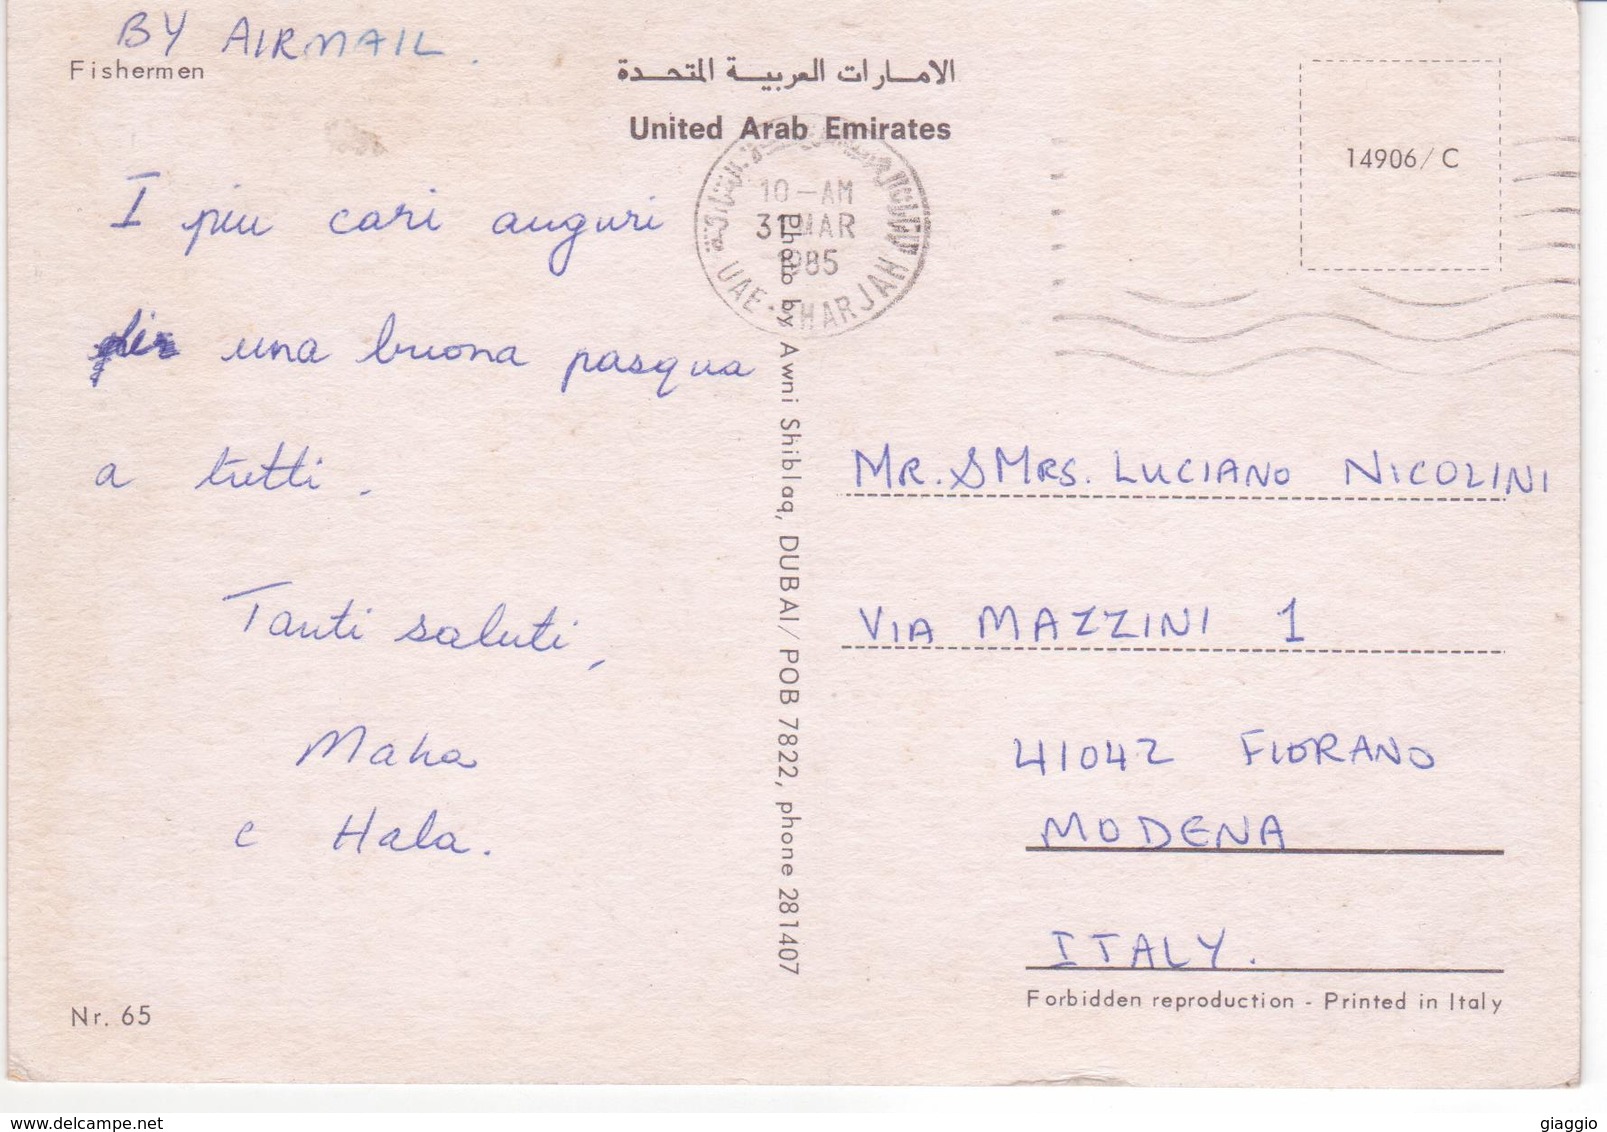 BY AIRMAIL.
Fishermen
الامارات العربية المتحدة
United Arab Emirates
14906/C
10-AM
31 MAR
1985
UAE·SHARJAH
I piu cari auguri
per una buona pasqua
a tutti.
Tanti saluti,
Maha
e Hala.
Photo by Awni Shiblaq, DUBAI/POB 7822, phone 281407
MR. & MRS. LUCIANO NICOLINI
VIA MAZZINI 1
41042 FIORANO
MODENA
ITALY.
Nr. 65
Forbidden reproduction - Printed in Italy
www.delcampe.net
giaggio